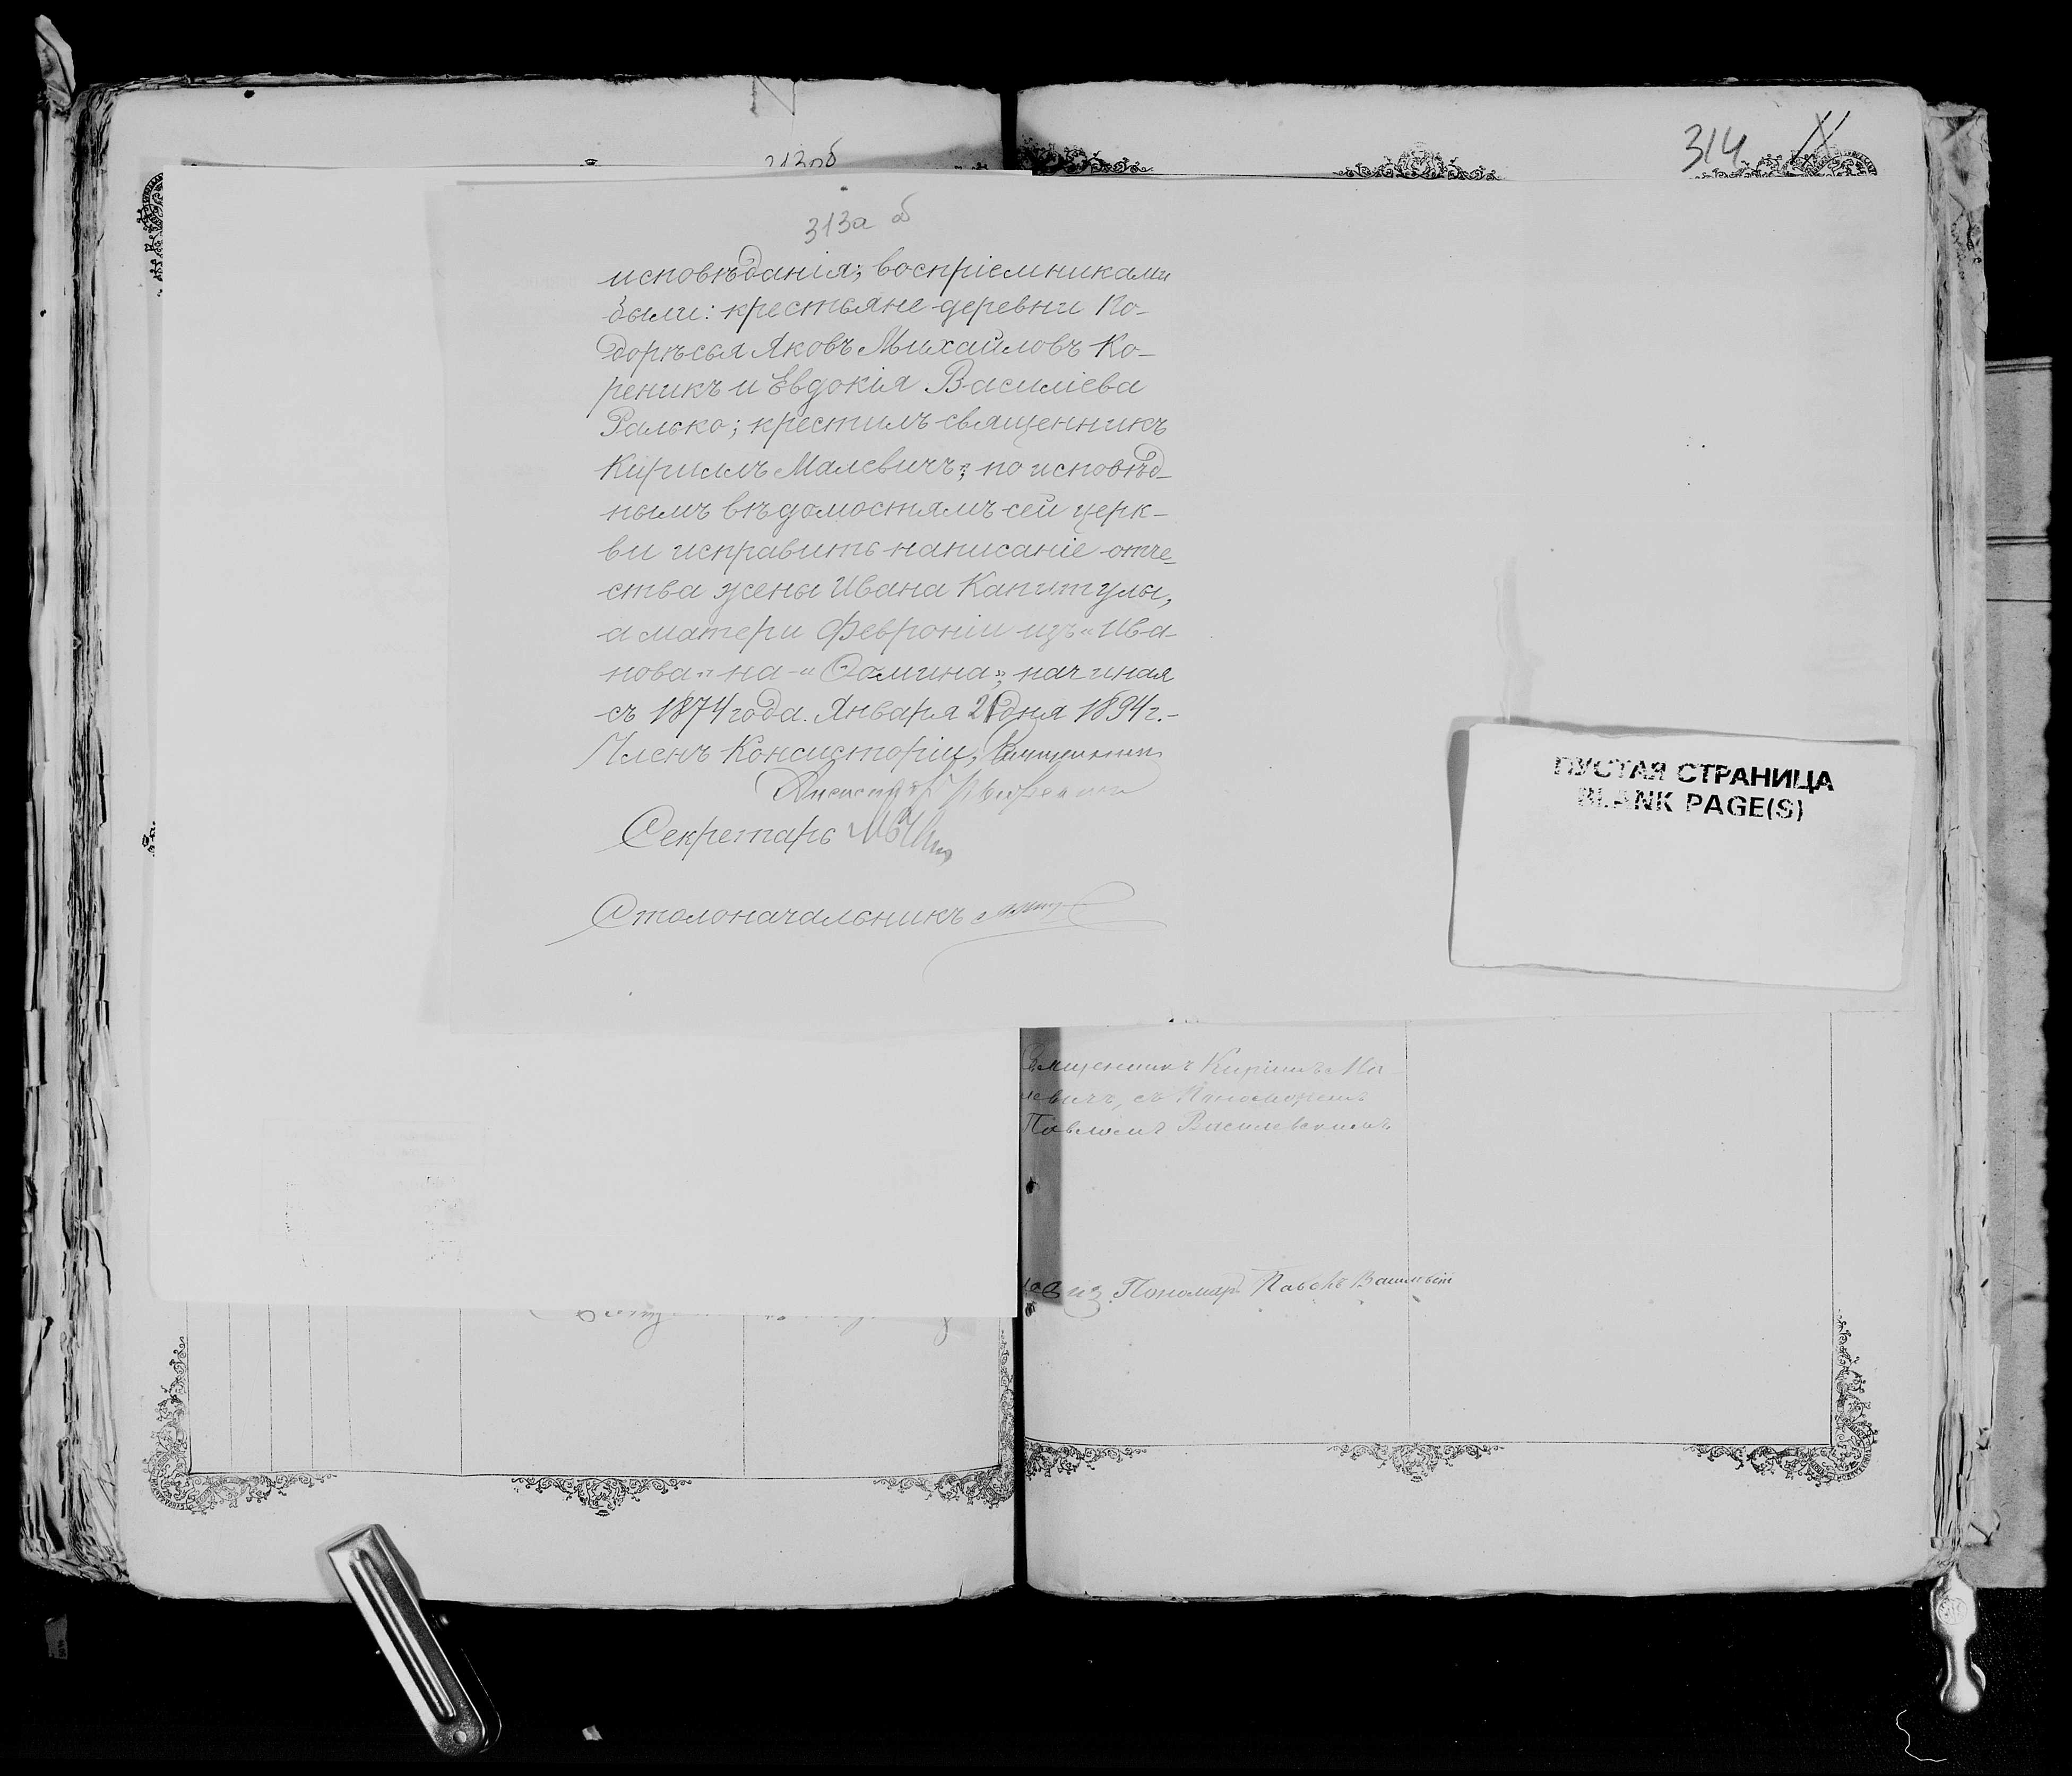 313а б
исповѣданія; воспріемниками
были: крестьяне деревни По-
дорѣсья Яковъ Михайловъ Ко-
реникъ и Евдокія Василіева
Ралько; крестилъ священникъ
Кириллъ Малевичъ; по исповѣд-
нымъ вѣдомостямъ сей церк-
ви исправить написаніе отче-
ства жены Ивана Капитулы,
а матери Февроніи изъ „Ива-
нова" на „Ѳомина"; начиная
съ 1874 года. Января 21 дня 1894 г.
Членъ Консисторіи, Священникъ
Секретарь
Столоначальникъ
314
ПУСТАЯ СТРАНИЦА
BLANK PAGE(S)
Священникъ Кириллъ Ма
левичъ, съ Пономаремъ
Павломъ Василевскимъ
Пономарь Павелъ